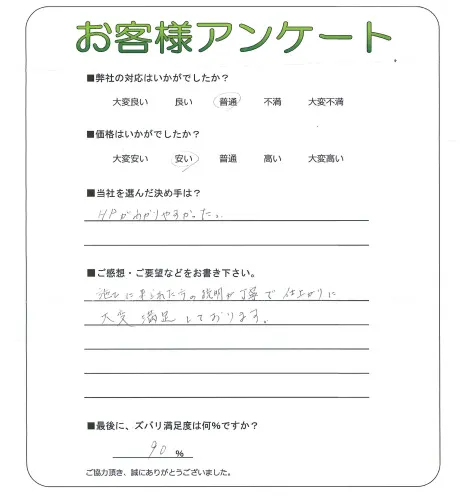 お客様アンケート
■弊社の対応はいかがでしたか？
大変良い 良い 普通 不満 大変不満
■価格はいかがでしたか？
大変安い 安い 普通 高い 大変高い
■当社を選んだ決め手は？
HPがわかりやすかった。
■ご感想・ご要望などをお書き下さい。
に来られた方の説明が丁寧で 仕上がりに
大変 満足 しております。
■最後に、ズバリ満足度は何%ですか？
90 %
ご協力頂き、誠にありがとうございました。